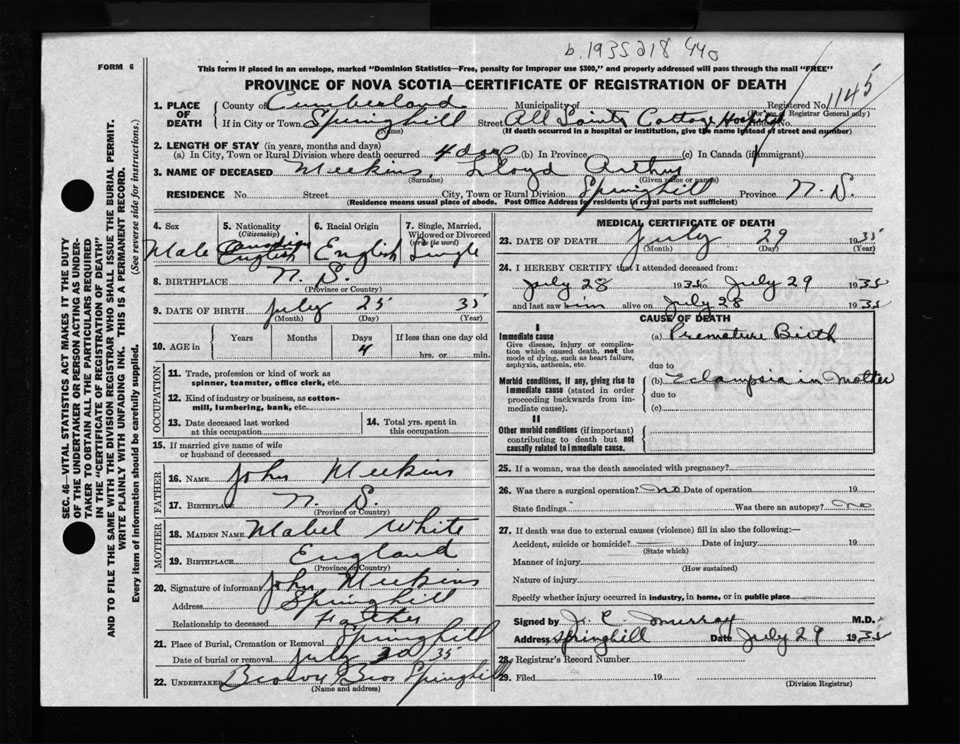 b. 1935 218 440
FORM 6
This form if placed in an envelope, marked "Dominion Statistics—Free, penalty for improper use $300," and properly addressed will pass through the mail "FREE"
PROVINCE OF NOVA SCOTIA—CERTIFICATE OF REGISTRATION OF DEATH
1145
1. PLACE OF DEATH
County of Cumberland Municipality of Registered No.
(For use of Registrar General only)
If in City or Town Springhill Street All Saints Cottage Hospital House No.
(Name) (If death occurred in a hospital or institution, give the name instead of street and number)
2. LENGTH OF STAY (in years, months and days)
(a) In City, Town or Rural Division where death occurred 4 days (b) In Province (c) In Canada (if immigrant)
3. NAME OF DECEASED Meekins, Lloyd Arthur
(Surname) (Given name or names)
RESIDENCE No. Street City, Town or Rural Division Springhill Province N. S.
(Residence means usual place of abode. Post Office Address for residents in rural parts not sufficient)
4. Sex Male
5. Nationality (Citizenship) Canadian English
6. Racial Origin English
7. Single, Married, Widowed or Divorced (write the word) Single
8. BIRTHPLACE N. S.
(Province or Country)
9. DATE OF BIRTH July 25 35
(Month) (Day) (Year)
10. AGE in Years Months Days 4 If less than one day old hrs. or min.
OCCUPATION
11. Trade, profession or kind of work as spinner, teamster, office clerk, etc.
12. Kind of industry or business, as cotton-mill, lumbering, bank, etc.
13. Date deceased last worked at this occupation
14. Total yrs. spent in this occupation
15. If married give name of wife or husband of deceased
FATHER
16. NAME John Meekins
17. BIRTHPLACE N. S.
(Province or Country)
MOTHER
18. MAIDEN NAME Mabel White
19. BIRTHPLACE England
(Province or Country)
20. Signature of informant John Meekins
Address Springhill
Relationship to deceased Father
21. Place of Burial, Cremation or Removal Springhill
Date of burial or removal July 30 35
22. UNDERTAKER Bros Springhill
(Name and address)
MEDICAL CERTIFICATE OF DEATH
23. DATE OF DEATH July 29 1935
(Month) (Day) (Year)
24. I HEREBY CERTIFY that I attended deceased from:
July 28 1935 to July 29 1935
and last saw him alive on July 28 1935
CAUSE OF DEATH
I
Immediate cause
Give disease, injury or complication which caused death, not the mode of dying, such as heart failure, asphyxia, asthenia, etc.
(a) Premature Birth
due to
Morbid conditions, if any, giving rise to immediate cause (stated in order proceeding backwards from immediate cause).
(b) Eclampsia in Mother
due to
(c)
II
Other morbid conditions (if important) contributing to death but not causally related to immediate cause.
25. If a woman, was the death associated with pregnancy?
26. Was there a surgical operation? no Date of operation 19
State findings Was there an autopsy? no
27. If death was due to external causes (violence) fill in also the following:—
Accident, suicide or homicide? Date of injury 19
(State which)
Manner of injury
(How sustained)
Nature of injury
Specify whether injury occurred in industry, in home, or in public place
Signed by Murray M.D.
Address Springhill Date July 29 1935
28. Registrar's Record Number
29. Filed 19
(Division Registrar)
SEC. 46—VITAL STATISTICS ACT MAKES IT THE DUTY
OF THE UNDERTAKER OR PERSON ACTING AS UNDER-
TAKER TO OBTAIN ALL THE PARTICULARS REQUIRED
IN THE "CERTIFICATE OF REGISTRATION OF DEATH"
AND TO FILE THE SAME WITH THE DIVISION REGISTRAR WHO SHALL ISSUE THE BURIAL PERMIT.
WRITE PLAINLY WITH UNFADING INK. THIS IS A PERMANENT RECORD.
Every item of information should be carefully supplied. (See reverse side for instructions.)